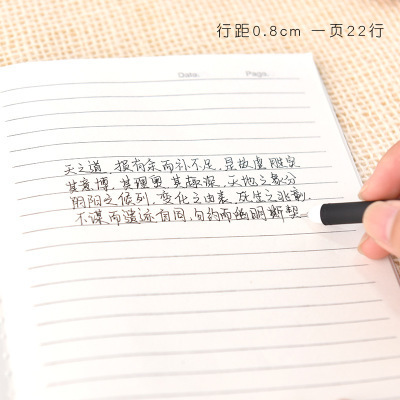 行距0.8cm 一页22行
Date.
Page.
天之道,损有余而补不足,是故虚胜实
其意博,其理奥,其趣深,天地之象分
阴阳之候列,变化之由表,死生之兆彰,
不谋而遗迹自同,勿约而幽明斯契